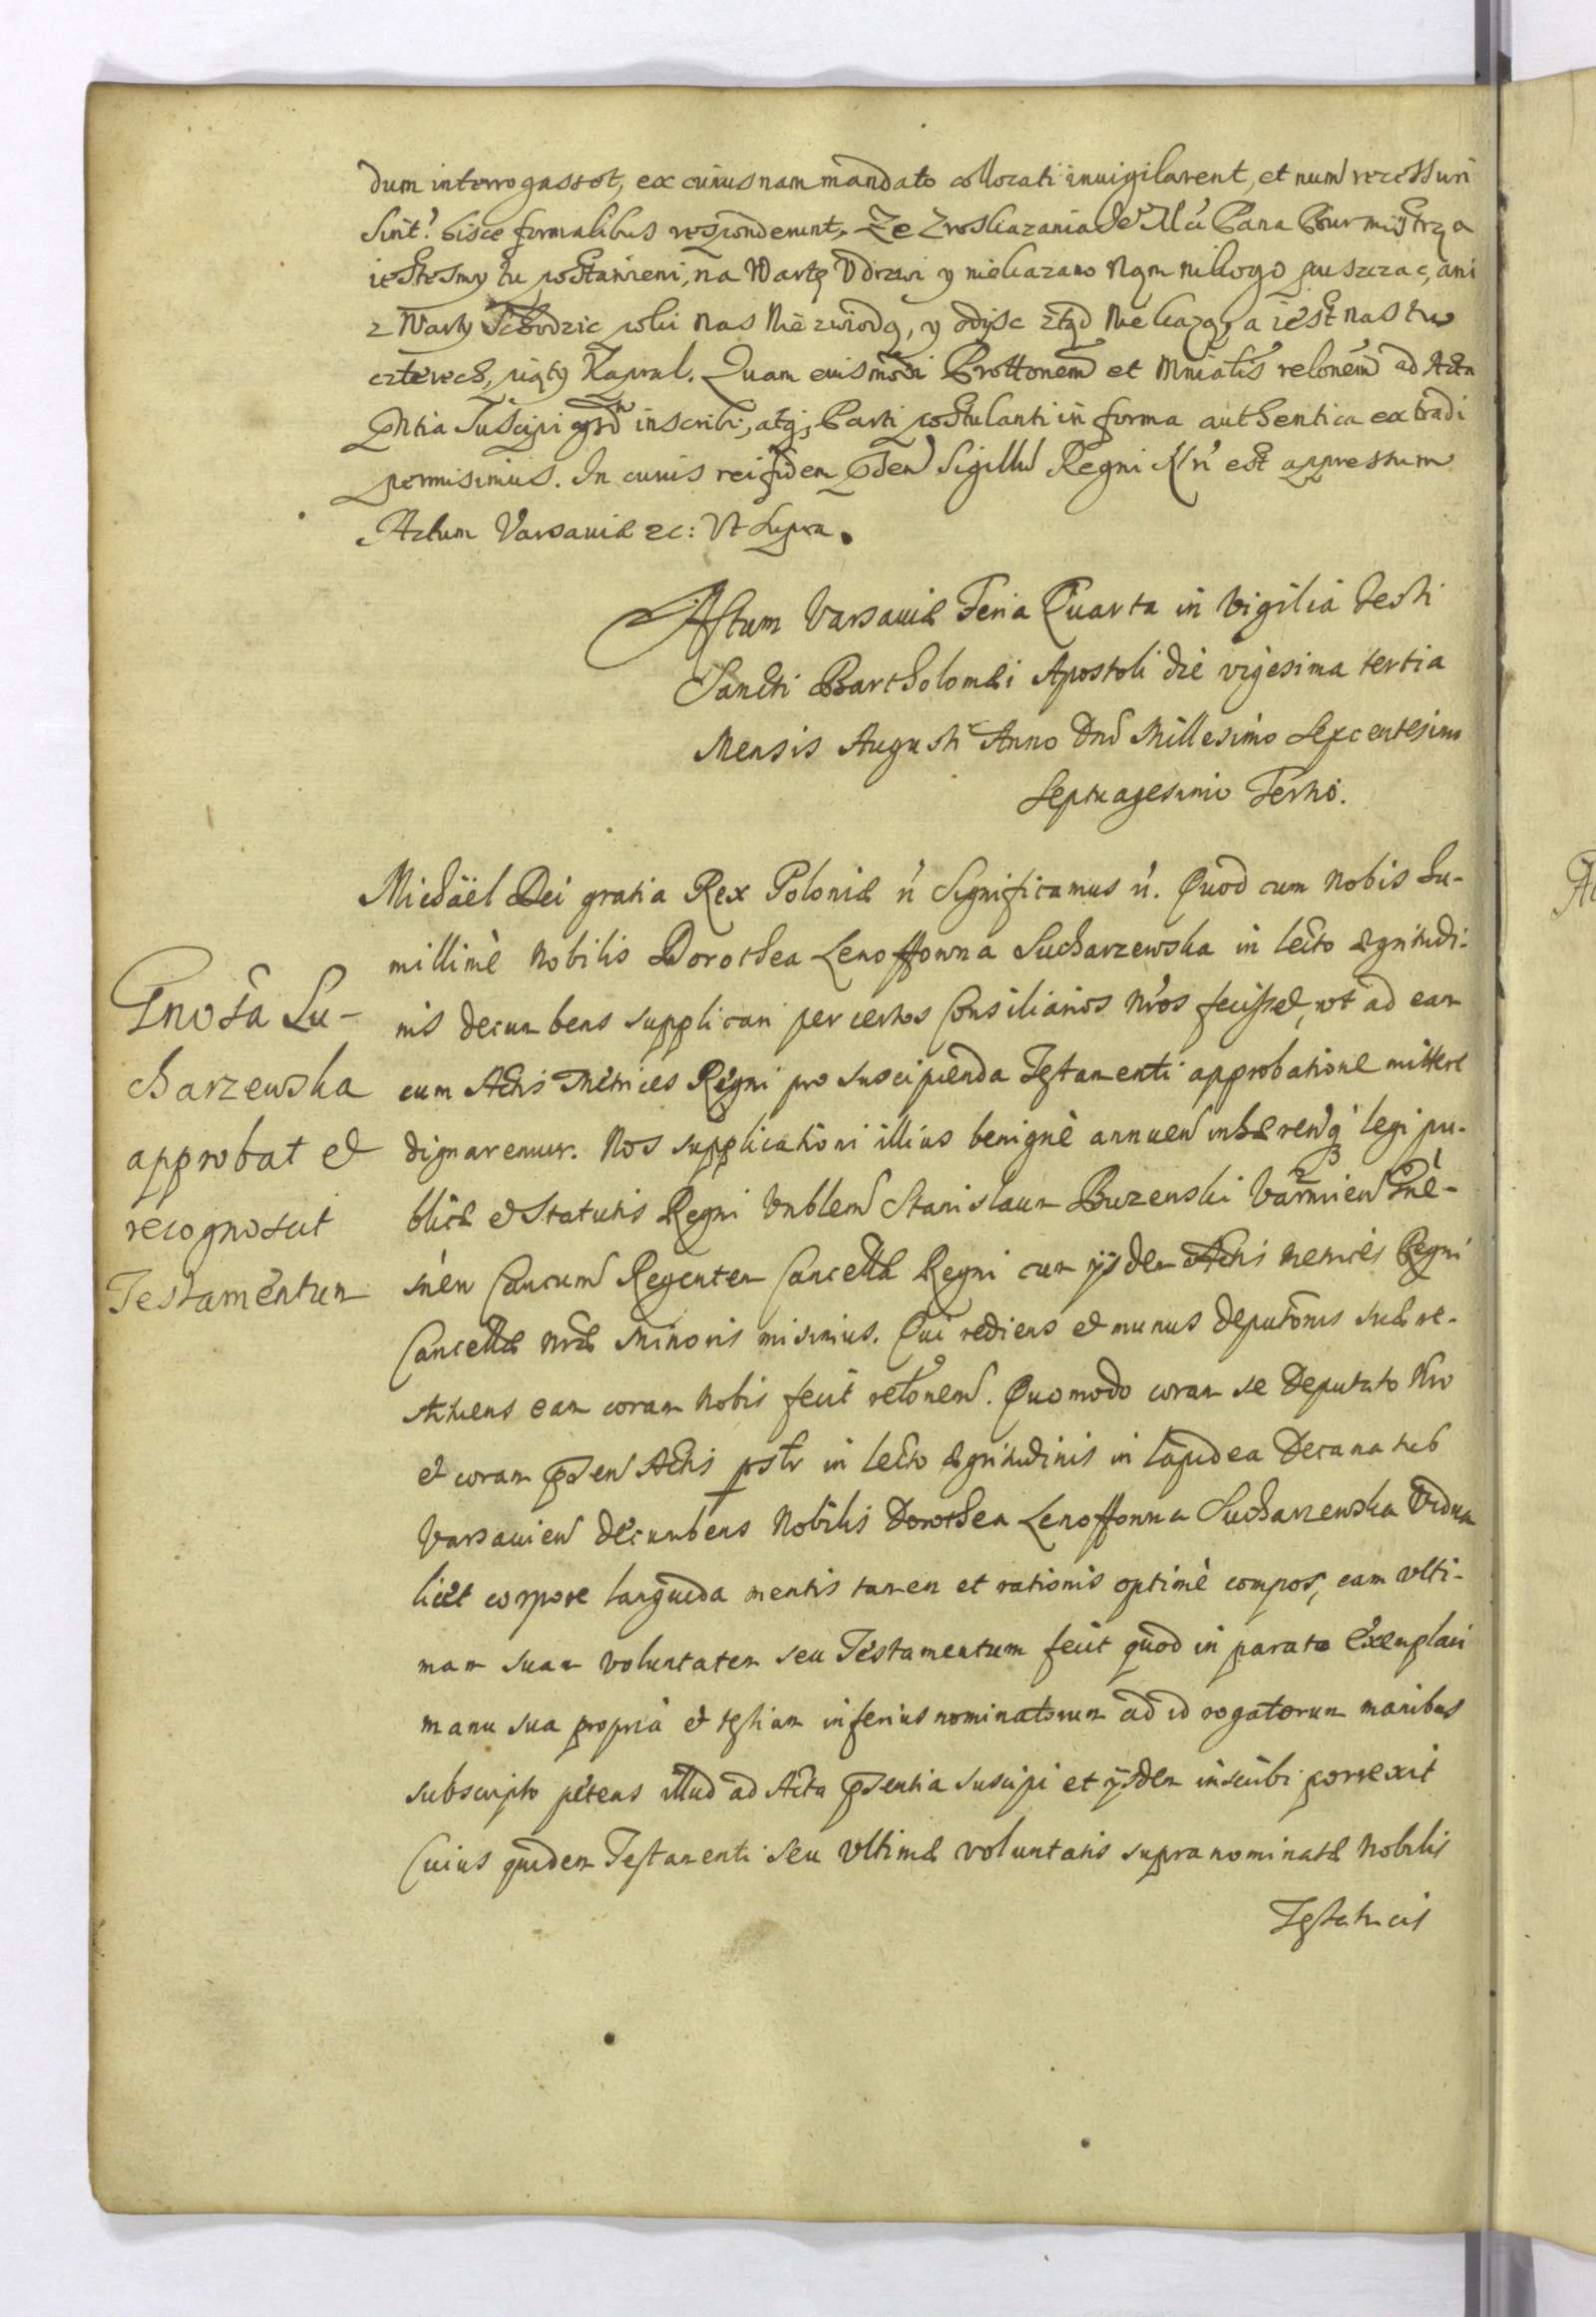 dum interrogasset, ex cuius nam mandato collocati inuigilarent, et num recessuri
sint? hisce formalibus responderunt, Ze z roskazania Je Mci Pana Burmistrza
iestesmy tu postawieni, na Wartę V drzwi y niekazano Nąm nikogo puszczac, ani
z Warty Schodzic poki nas Nie zwiodą, y odyjsc ztąd Nie kazą, a iest nas tu
czterech, piąty Kapral. Quam eiusmodi Prottonem et Mnialis relonem ad Acta
pntia Suscipi inscribi, atq; Parti postulanti in forma authentica extradi
permisimus. In cuius rei fidem pnsen Sigillu Regni Nri est appressum
Actum Varsaviæ &c: Vt Supra.
Actum Varsaviæ Feria Quarta in Vigilia Festi
Sancti Bartholomæi Apostoli die vigesima tertia
Mensis Augusti Anno Dni Millesimo Sexcentesimo
Septuagesimo Tertio.
Michäel Dei gratia Rex Poloniæ &c Significamus &c. Quod cum Nobis hu-
millimè Nobilis Dorothea Lenoffowna Sucharzewska in lecto ægritudi-
nis decumbens supplicari per certos Consiliarios Nros fecisset, vt ad eam
cum Actis Metrices Regni pro suscipienda Testamenti approbatione mittere
dignaremur. Nos supplicationi illius benignè annuen inhæren'q; legi pu-
blicæ et Statutis Regni Vnblem Stanislaum Buzenski Varmien Gne-
snen Canum Regentem Cancellæ Regni cum ijsdem Actis Metrices Regni
Cancellæ Nræ Minoris misimus. Qui rediens et munus deputonis suæ re-
stituens eam coram Nobis fecit relonem. Quomodo coram se Deputato Nro
et coram psen Actis pstr in lecto ægritudinis in lapidea Decanatus
Varsavien decumbens Nobilis Dorothea Lenoffowna Sucharzewska Vidua
licet corpore languida mentis tamen et rationis optimè compos, eam vlti-
mam suam voluntatem seu Testamentum fecit quod in parato Exemplari
manu sua propria et testium inferius nominatorum ad id rogatorum manibus
subscripto petens illud ad Acta psentia suscipi et ijsdem inscribi porrexit
Cuius quidem Testamenti seu Vltimæ voluntatis supra nominatæ Nobilis
Testatricis
Gnosa Su-
charzewska
approbat et
recognoscit
Testamentum